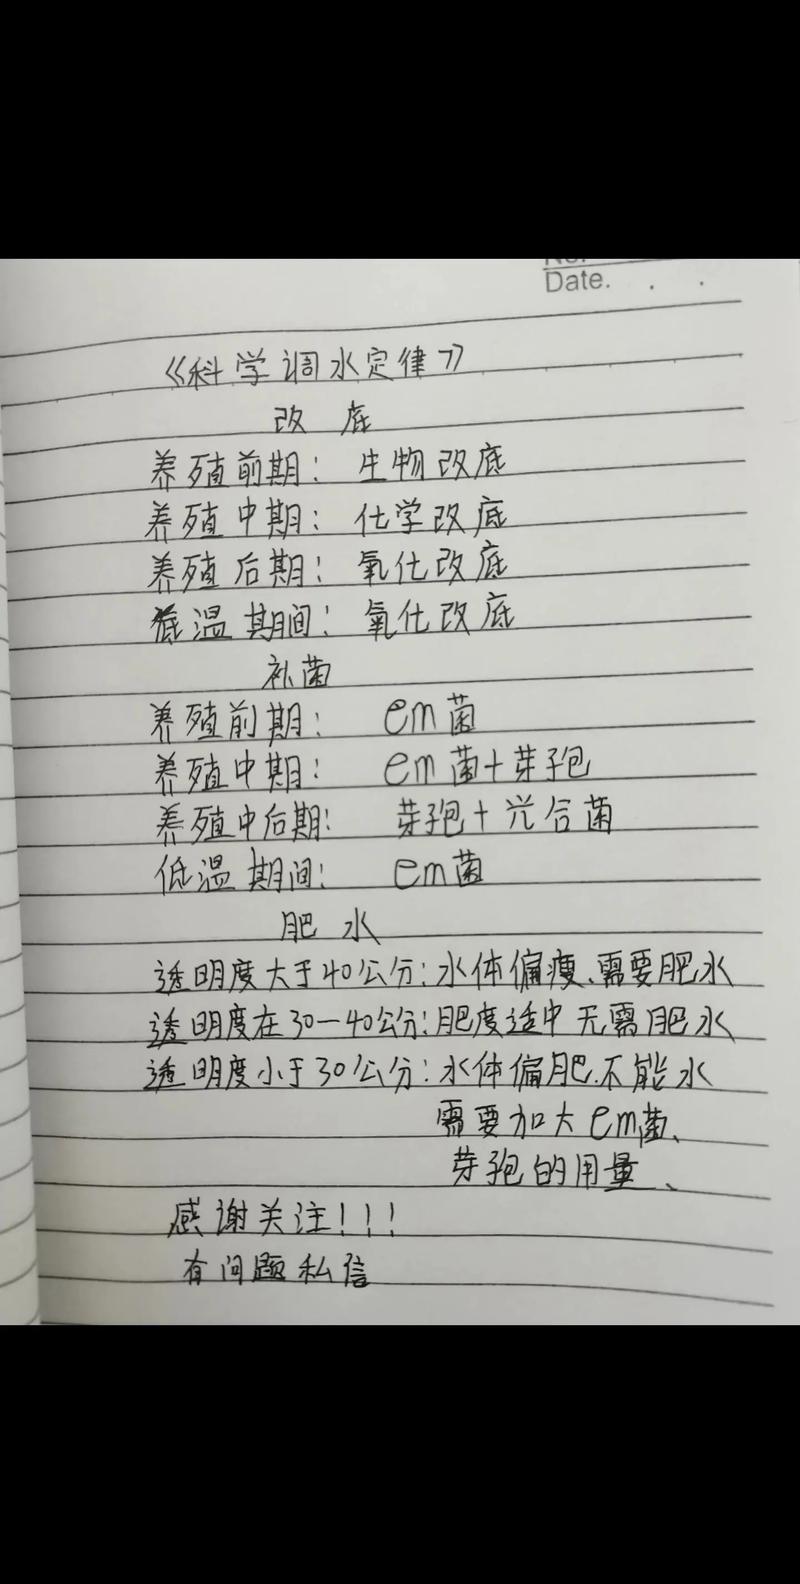 No.
Date. . .
《科学调水定律》
改底
养殖前期：生物改底
养殖中期：化学改底
养殖后期：氧化改底
低温期间：氧化改底
补菌
养殖前期：em菌
养殖中期：em菌+芽孢
养殖中后期：芽孢+光合菌
低温期间：em菌
肥水
透明度大于40公分：水体偏瘦、需要肥水
透明度在30—40公分：肥度适中无需肥水
透明度小于30公分：水体偏肥.不能水
需要加大em菌、
芽孢的用量、
感谢关注！！！
有问题私信